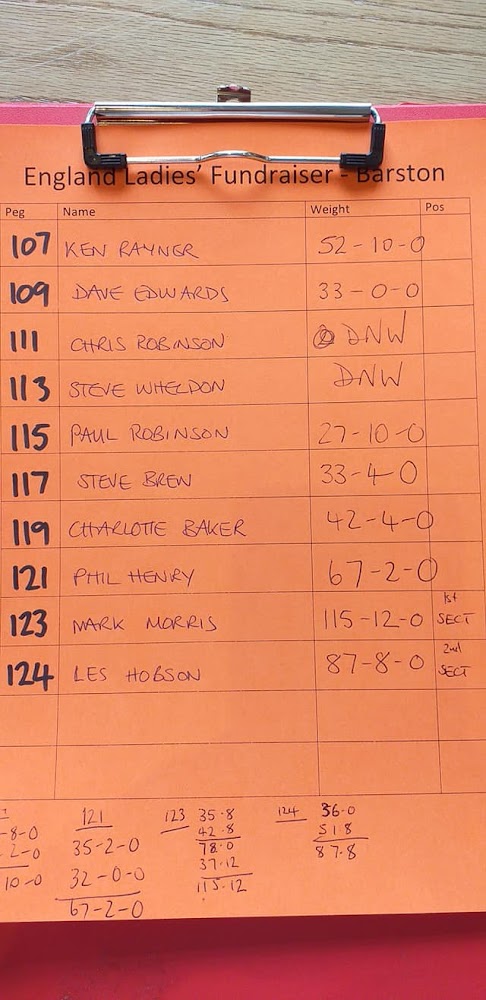 England Ladies' Fundraiser - Barston
Peg Name Weight Pos
107 KEN RAYNER 52-10-0
109 DAVE EDWARDS 33-0-0
111 CHRIS ROBINSON DNW
113 STEVE WHELDON DNW
115 PAUL ROBINSON 27-10-0
117 STEVE BREW 33-4-0
119 CHARLOTTE BAKER 42-4-0
121 PHIL HENRY 67-2-0
123 MARK MORRIS 115-12-0 1st SECT
124 LES HOBSON 87-8-0 2nd SECT
121 123 35.8 124 36-0
-8-0 35-2-0 42.8 51.8
2-0 32-0-0 78.0 87.8
10-0 67-2-0 37.12
115.12